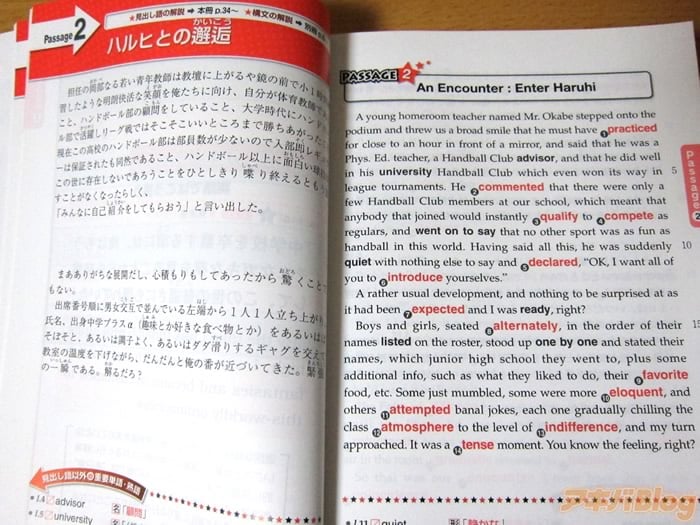 Passage 2
★見出し語の解説 ➡ 本冊 p.34～ ★構文の解説 ➡ 別冊
ハルヒとの邂逅
かいこう
担任の岡部なる若い青年教師は教壇に上がるや鏡の前で小1時間
習したような明朗快活な笑顔を俺たちに向け、自分が体育教師であ
こと、ハンドボール部の顧問をしていること、大学時代にハンドボ
ル部で活躍しリーグ戦ではそこそこいいところまで勝ちあがったこ
現在この高校のハンドボール部は部員数が少ないので入部即レギュ
ーは保証されたも同然であること、ハンドボール以上に面白い球技
この世に存在しないであろうことをひとしきり喋り終えるともう
すことがなくなったらしく、
「みんなに自己紹介をしてもらおう」と言い出した。
まああありがちな展開だし、心積もりもしてあったから驚くことで
もない。
出席番号順に男女交互で並んでいる左端から1人1人立ち上がり、
氏名、出身中学プラスα（趣味とか好きな食べ物とか）をあるいはぼ
そぼそと、あるいは調子よく、あるいはダダ滑りするギャグを交えて
教室の温度を下げながら、だんだんと俺の番が近づいてきた。緊張
の一瞬である。解るだろ?
見出し語以外の重要単語・熟語
l.4 advisor 名「顧問」
l.5 university
PASSAGE 2
An Encounter : Enter Haruhi
A young homeroom teacher named Mr. Okabe stepped onto the
podium and threw us a broad smile that he must have ❶practiced
for close to an hour in front of a mirror, and said that he was a
Phys. Ed. teacher, a Handball Club advisor, and that he did well
in his university Handball Club which even won its way in 5
league tournaments. He ❷commented that there were only a
few Handball Club members at our school, which meant that
anybody that joined would instantly ❸qualify to ❹compete as
regulars, and went on to say that no other sport was as fun as
handball in this world. Having said all this, he was suddenly 10
quiet with nothing else to say and ❺declared, “OK, I want all of
you to ❻introduce yourselves.”
A rather usual development, and nothing to be surprised at as
it had been ❼expected and I was ready, right?
Boys and girls, seated ❽alternately, in the order of their 15
names listed on the roster, stood up one by one and stated their
names, which junior high school they went to, plus some
additional info, such as what they liked to do, their ❾favorite
food, etc. Some just mumbled, some were more ❿eloquent, and
others ⓫attempted banal jokes, each one gradually chilling the
class ⓬atmosphere to the level of ⓭indifference, and my turn
approached. It was a ⓮tense moment. You know the feeling, right?
Passage 2
l.11 quiet 形「静かな」
アキバBlog